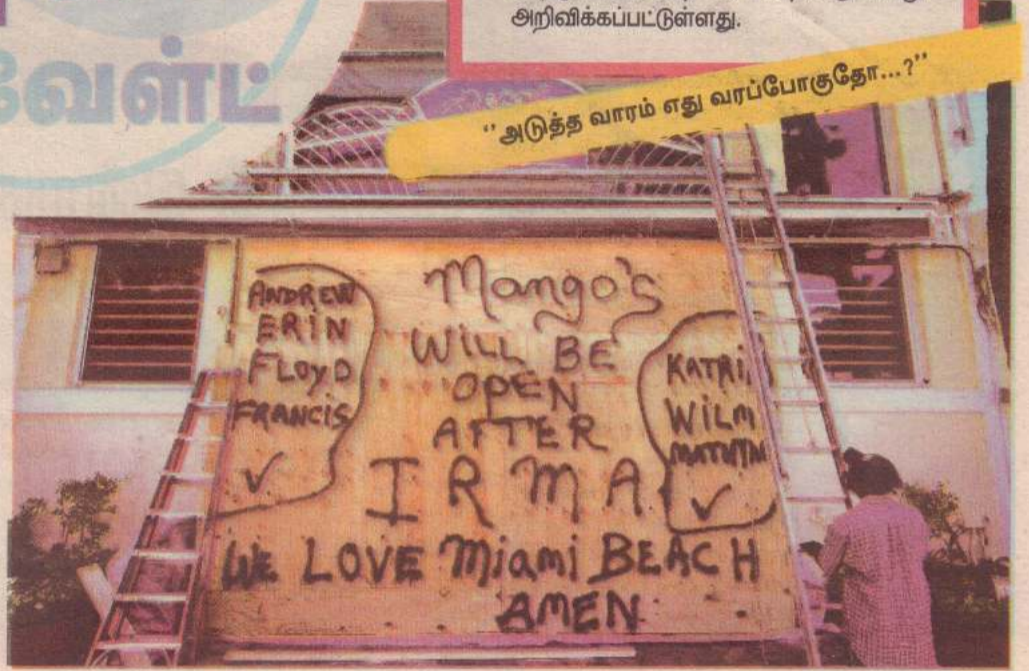 அறிவிக்கப்பட்டுள்ளது.
வேள்ட்
"அடுத்த வாரம் எது வரப்போகுதோ...?"
ANDREW
ERIN
FLOYD
FRANCIS
✓
Mango's
WILL BE
OPEN
AFTER
IRMA
KATRI
WILM
✓
WE LOVE Miami BEACH
AMEN